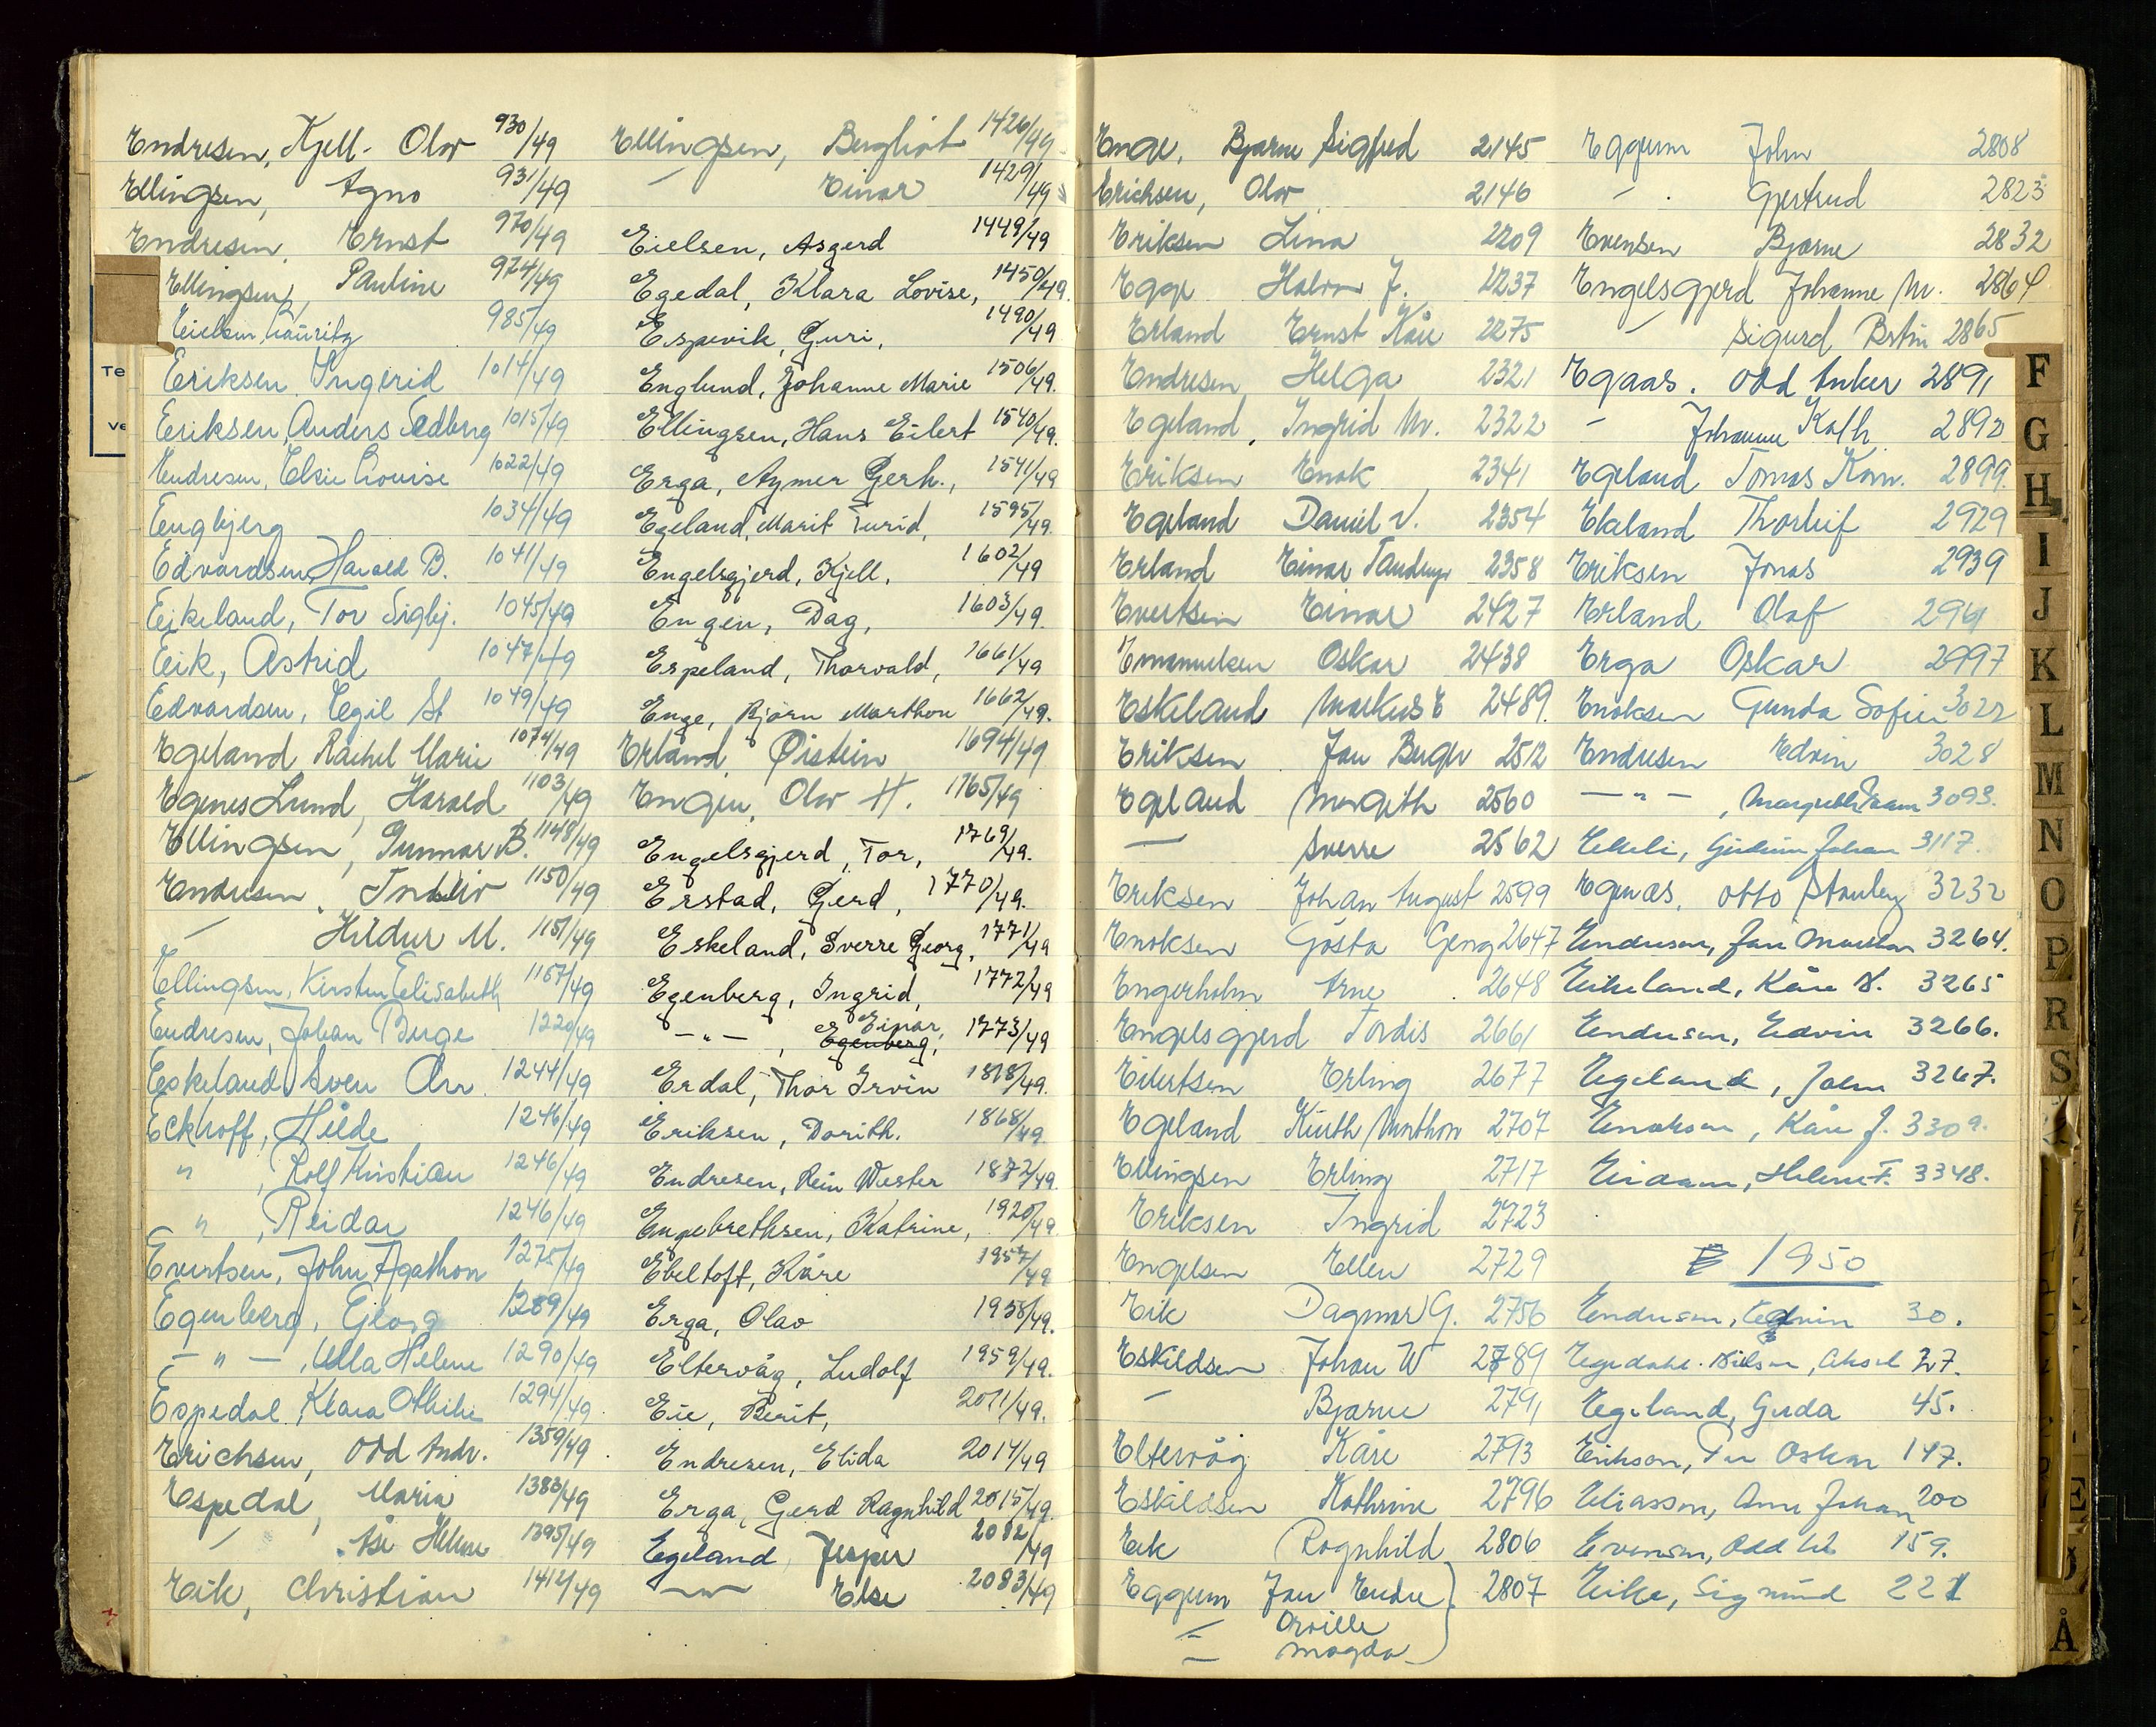 Endresen, Kjell- Olav 930/49
Ellingsen, Agno 931/49
Endresen, Ernst 970/49
Ellingsen, Pauline 974/49
Eielsen, Lauritz 985/49
Eriksen Ingerid 1014/49
Eriksen, Anders Sedberg 1015/49
Endresen, Elsie Louise 1022/49
Engbjerg 1034/49
Edvardsen, Harald B. 1041/49
Eikeland, Tor Sigbj. 1045/49
Eik, Astrid 1047/49
Edvardsen, Egil St 1049/49
Egeland Rachel Marie 1074/49
Egenes Lund, Harald 1103/49
Ellingsen, Gunnar B. 1148/49
Endresen, 1150/49
— Hildur M. 1151/49
Ellingsen, Kirsten Elisabeth 1167/49
Endresen, Johan Birge 1220/49
Eskeland, Sven Arr 1244/49
Eckhoff, Hilde 1246/49
" , Rolf Kristian 1246/49
" , Reidar 1246/49
Evertsen, John Agathon 1275/49
Egenberg, Georg 1289/49
— " — , Ulla Helene 1290/49
Espedal, Klara Othilie 1294/49
Erichsen, Odd Andr. 1359/49
Espedal, Maria 1383/49
— Åse Helene 1395/49
Eik, Christian 1412/49
Ellingsen, Bergliot 1426/49
— Einar 1429/49
Eielsen, Asgerd 1449/49
Egedal, Klara Lovise, 1450/49.
Espevik, Guri, 1490/49
Englund, Johanne Marie 1506/49.
Ellingsen, Hans Eilert 1540/49.
Erga, Aymer Gerh., 1541/49
Egeland, Marit Turid, 1595/49.
Engelsgjerd, Kjell, 1602/49
Engen, Dag, 1603/49.
Espeland, Thorvald, 1661/49
Enge, Bjørn Marthon 1662/49.
Erland, Øistein 1694/49
Engen, Olav H. 1765/49
Engelsgjerd, Tor, 1769/49.
Erstad, Gerd, 1770/49.
Eskeland, Sverre Georg, 1771/49
Egenberg, Ingrid, 1772/49
— " — , Einar, Egenberg, 1773/49
Erdal, Thor Irvin 1818/49.
Eriksen, Dorith. 1868/49
Endresen, Rein Wester 1872/49.
Engebrethsen, Katrine, 1920/49.
Ebeltoft, Kåre 1957/49
Erga, Olav 1958/49.
Eltervåg, Ludolf 1959/49.
Eie, Berit, 2011/49.
Endresen, Elida 2014/49
Erga, Gerd Ragnhild 2015/49.
Egeland, Jesper 2082/49
—"— Else 2083/49
Enge, Bjarne Sigfred 2145
Erichsen, Olav 2146
Eriksen Lina 2209
Egge Halvor J. 2237
Erland Ernst Kåre 2275
Endresen Helga 2321
Egeland, Ingrid M. 2322
Eriksen Enok 2341
Egeland Daniel V. 2354
Erland Einar 2358
Evertsen Einar 2427
Emanuelsen Oskar 2438
Eskeland Markus E 2489.
Eriksen Jan Birger 2512
Egeland Margith 2560
— Sverre 2562
Eriksen Johan August 2599
Enoksen Gösta Georg 2647
Engerholm Arne 2648
Engelsgjerd Tordis 2661
Eilertsen Erling 2677
Egeland Knuth Marthon 2707
Ellingsen Erling 2717
Eriksen Ingrid 2723
Engelsen Ellen 2729
Eik Dagmar G. 2756
Eskildsen Johan W 2789
— Bjarne 2791
Eltervåg Kåre 2793
Eskildsen Kathrine 2796
Eik Ragnhild 2806
Eggum Jan Endre } 2807
— Orville
— Magda
Eggum John 2808
— Gjertrud 2823
Evensen Bjarne 2832
Engelsgjerd Johanne M. 2864
— Sigurd 2865
Egaas. Odd Anker 2891
— Johanne Kath. 2892
Egeland Tomas Korn. 2899.
Ekeland Thorleif 2929
Eriksen Jonas 2939
Erland Olaf 2961
Erga Oskar 2997
Enoksen Gunda Sofie 3022
Endresen Edvin 3028
— " — , Margrethe 3093.
Ekeli, Johan 3117.
Egenæs, Otto Stanley 3232
Endresen, Jan 3264.
Eikeland, Kåre 3265
Endresen, Edvin 3266.
Egeland, John 3267.
Enoksen, Kåre J. 3309.
Helene F. 3348.
1950
Endresen, Edvin 30.
Egedahl-Nilsen, Aksel 27.
Egeland, Gerda 45.
Eriksen, Per Oskar 147.
Eliassen, Arne Johan 200
Evensen, Odd 159.
Eike, Sigmund 221
Te
ve
F
G
H
I
J
K
L
M
N
O
P
R
S
Å